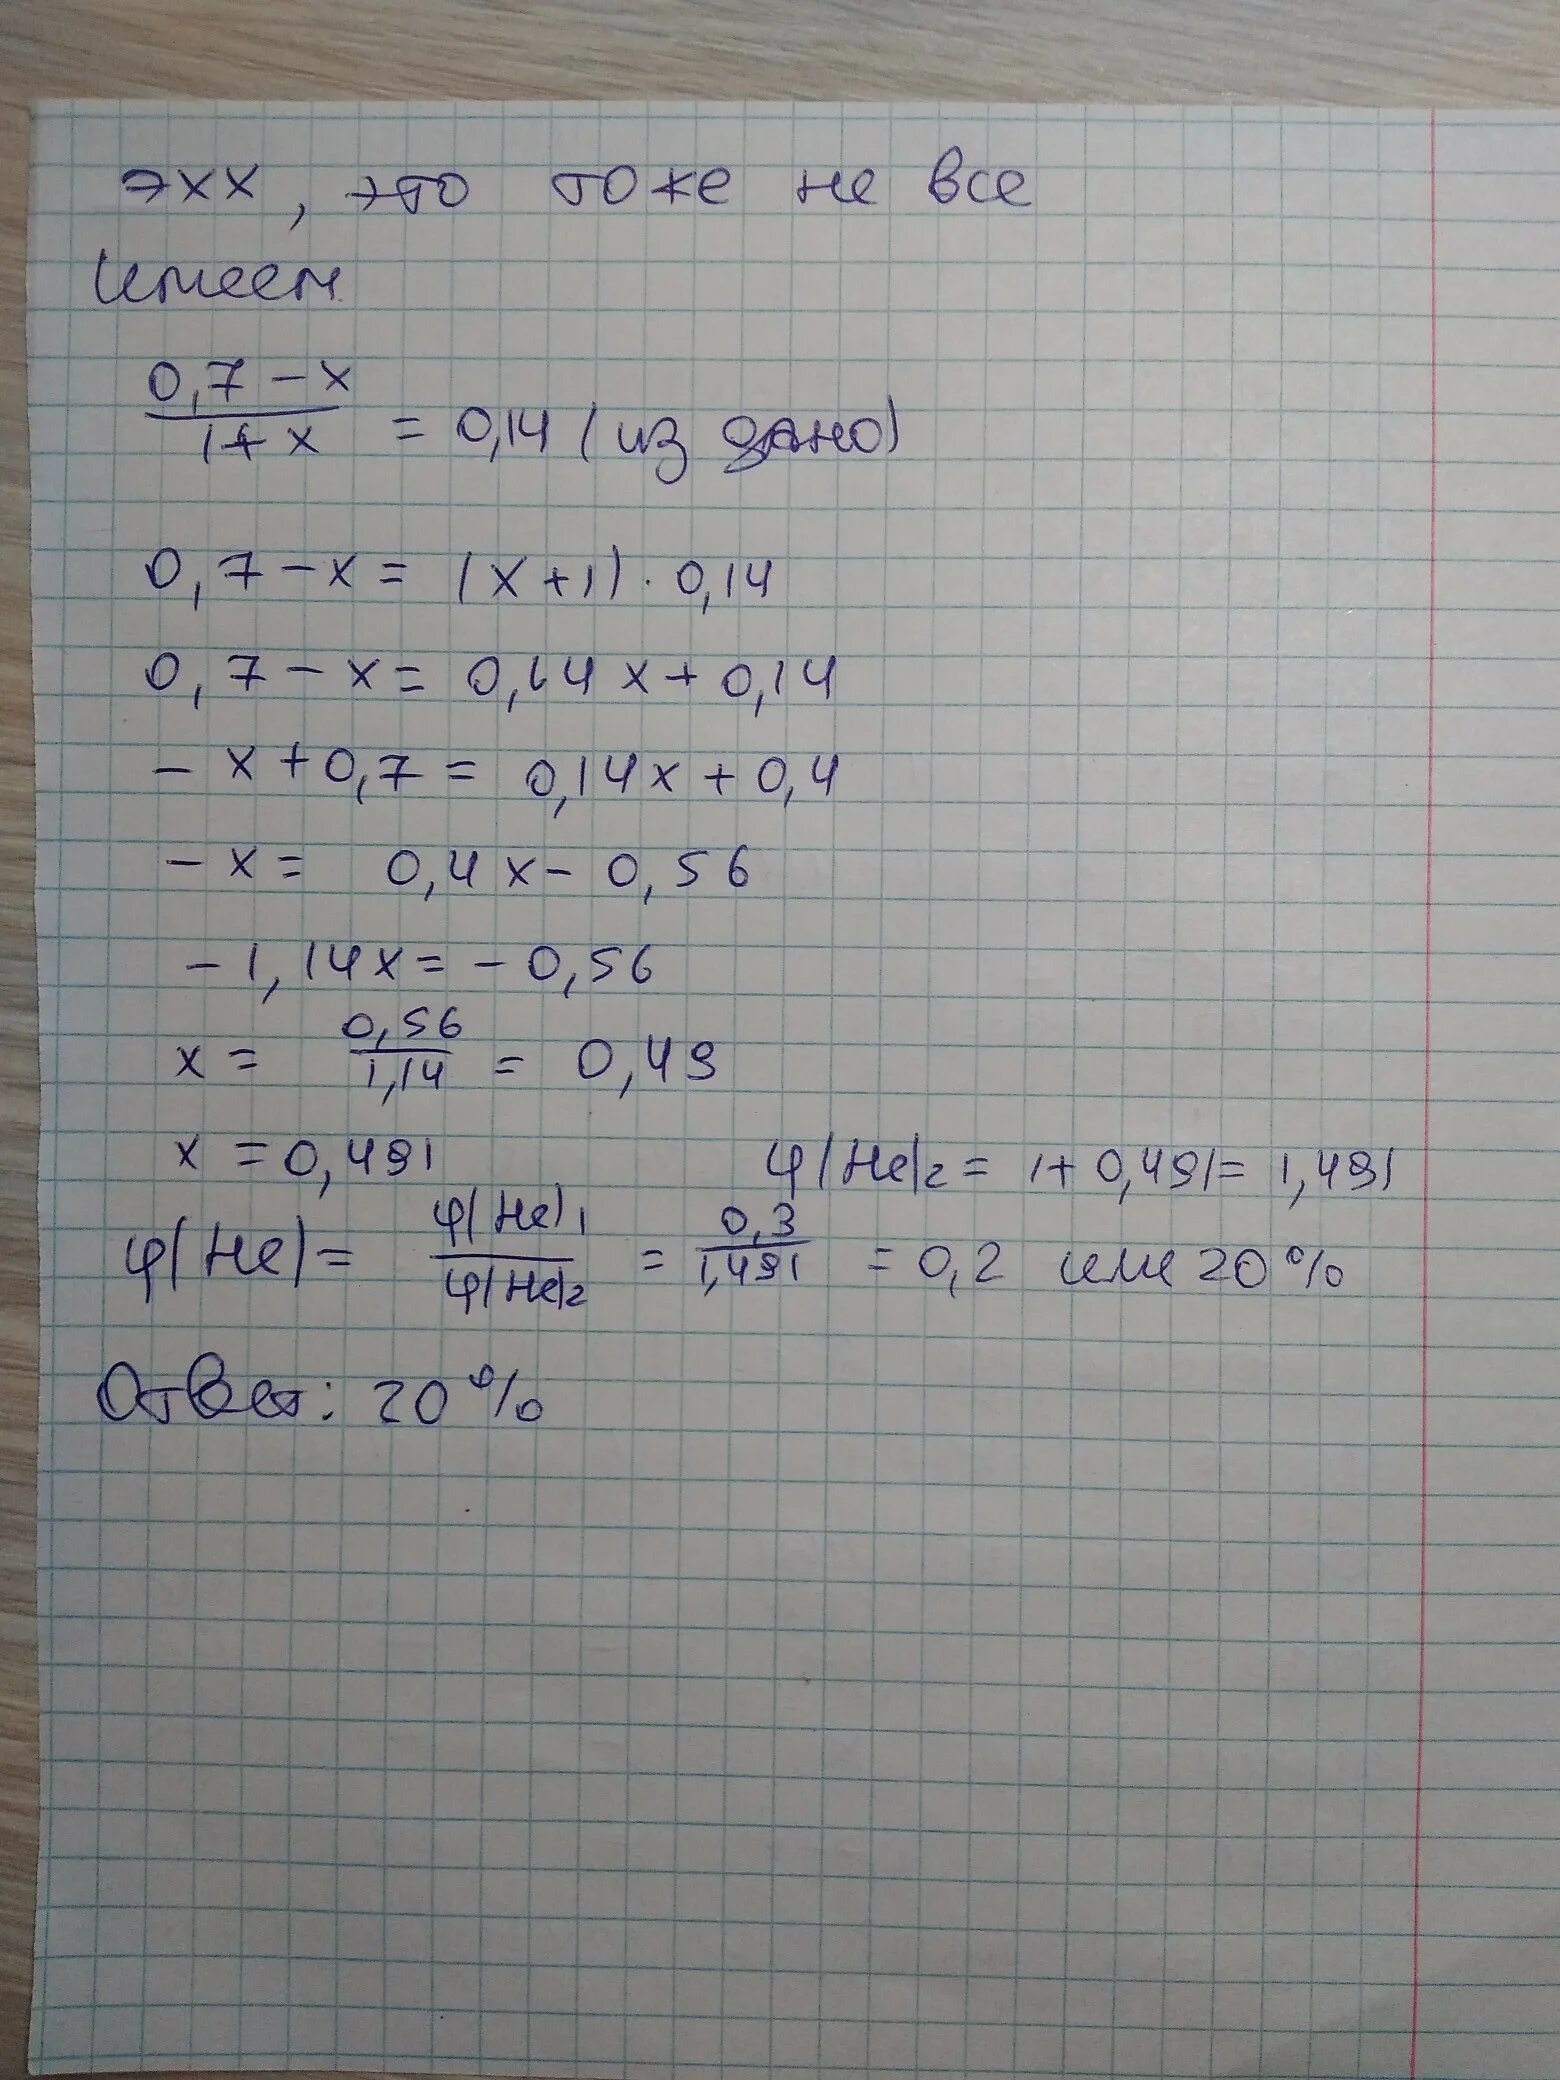 эхх, это тоже не все
имеем
0,7-x
1+x = 0,14 (из дано)
0,7-x = (x+1)·0,14
0,7-x = 0,14x+0,14
-x+0,7 = 0,14x+0,4
-x = 0,4x-0,56
-1,14x = -0,56
x = 0,56/1,14 = 0,49
x = 0,491
φ(He)2 = 1+0,491 = 1,491
φ(He) = φ(He)1/φ(He)2 = 0,3/1,491 = 0,2 или 20%
Ответ: 20%